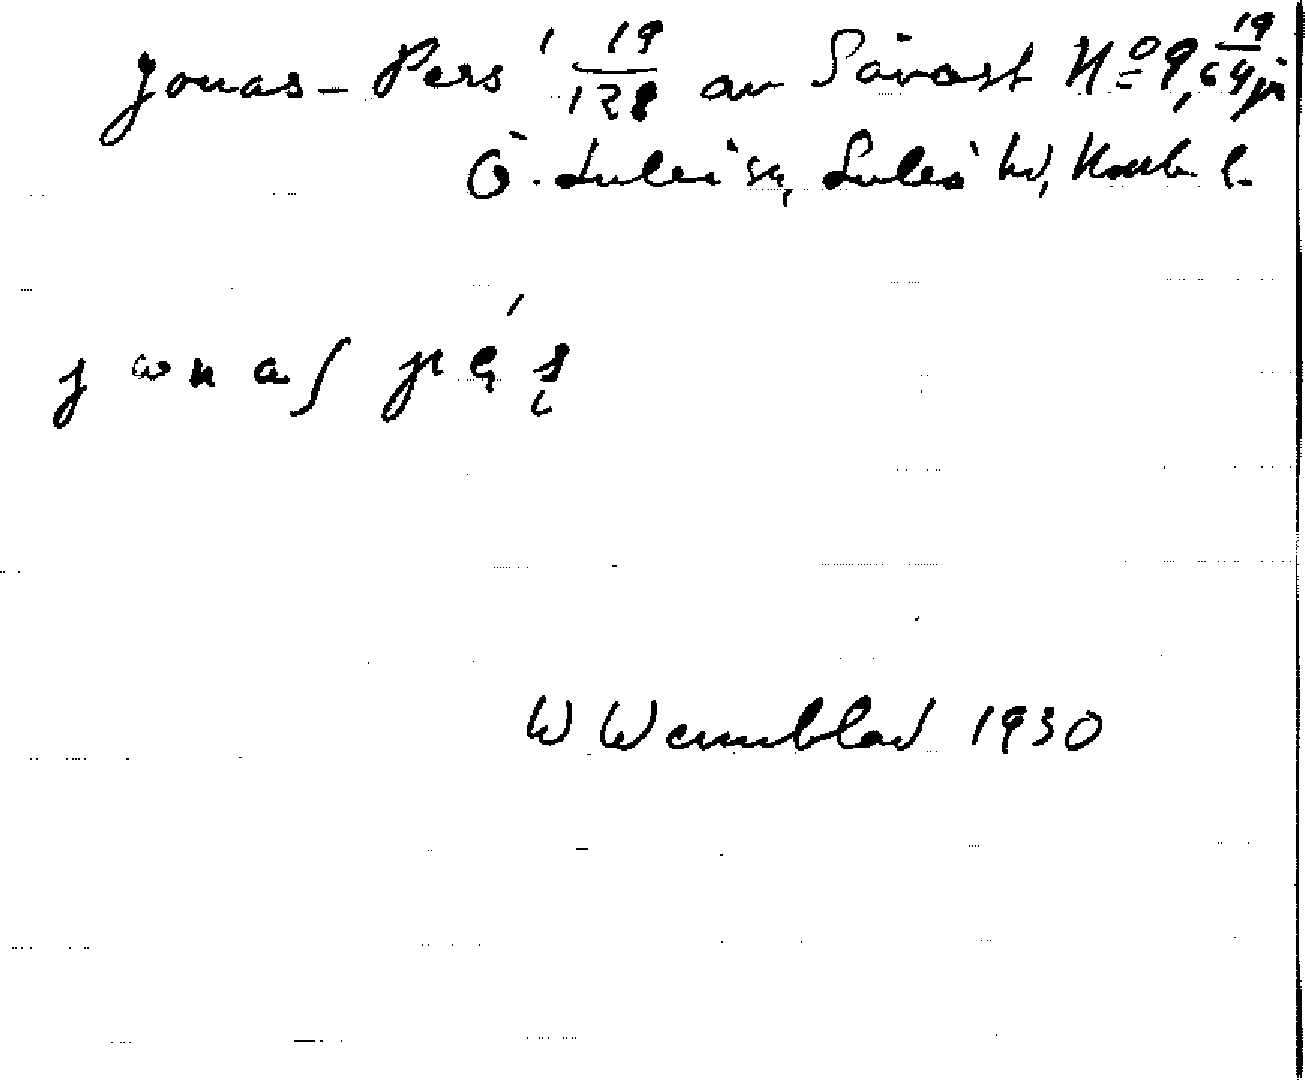 Jonas-Pers' 19/128 av Sävast Nº 9, 6 19/64 jr
Ö. Luleå sn, Luleå tr, Norrb. l.
W Wennblad 1930